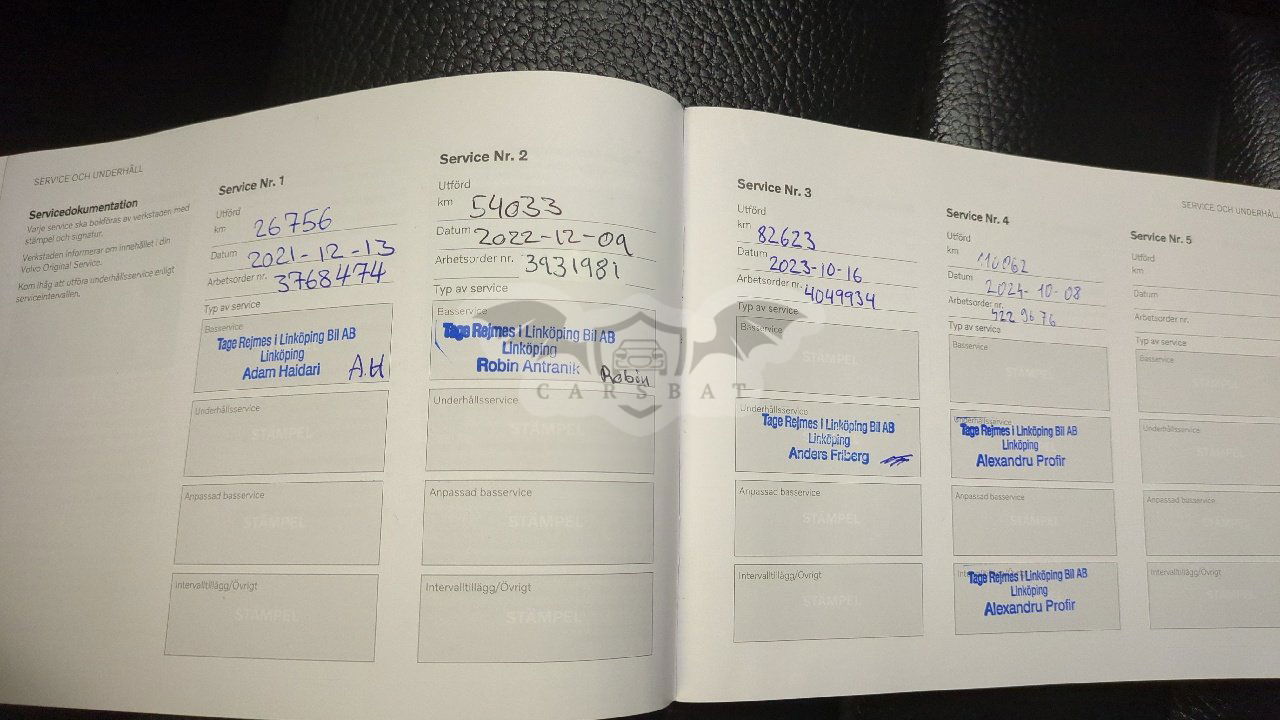 SERVICE OCH UNDERHÅLL
Servicedokumentation
Varje service ska bokföras av verkstaden med
stämpel och signatur.
Verkstaden informerar om innehållet i din
Volvo Original Service.
Kom ihåg att utföra underhållsservice enligt
serviceintervallen.
Service Nr. 1
Utförd
km 26756
Datum 2021-12-13
Arbetsorder nr. 3768474
Typ av service
Basservice
Tage Rejmes i Linköping Bil AB
Linköping
Adam Haidari A.H
Underhållsservice
STÄMPEL
Anpassad basservice
STÄMPEL
Intervalltillägg/Övrigt
STÄMPEL
Service Nr. 2
Utförd
km 54033
Datum 2022-12-09
Arbetsorder nr. 3931981
Typ av service
Basservice
Tage Rejmes i Linköping Bil AB
Linköping
Robin Antranik Robin
Underhållsservice
STÄMPEL
Anpassad basservice
STÄMPEL
Intervalltillägg/Övrigt
STÄMPEL
CARSBAT
Service Nr. 3
Utförd
km 82623
Datum 2023-10-16
Arbetsorder nr. 4049934
Typ av service
Basservice
STÄMPEL
Underhållsservice
Tage Rejmes i Linköping Bil AB
Linköping
Anders Friberg
Anpassad basservice
STÄMPEL
Intervalltillägg/Övrigt
STÄMPEL
SERVICE OCH UNDERHÅLL
Service Nr. 4
Utförd
km 110062
Datum 2024-10-08
Arbetsorder nr. 4229676
Typ av service
Basservice
STÄMPEL
Underhållsservice
Tage Rejmes i Linköping Bil AB
Linköping
Alexandru Profir
Anpassad basservice
STÄMPEL
Tage Rejmes i Linköping Bil AB
Linköping
Alexandru Profir
Service Nr. 5
Utförd
km
Datum
Arbetsorder nr.
Typ av service
Basservice
Underhållsservice
Anpassad basservice
Intervalltillägg/Övrigt